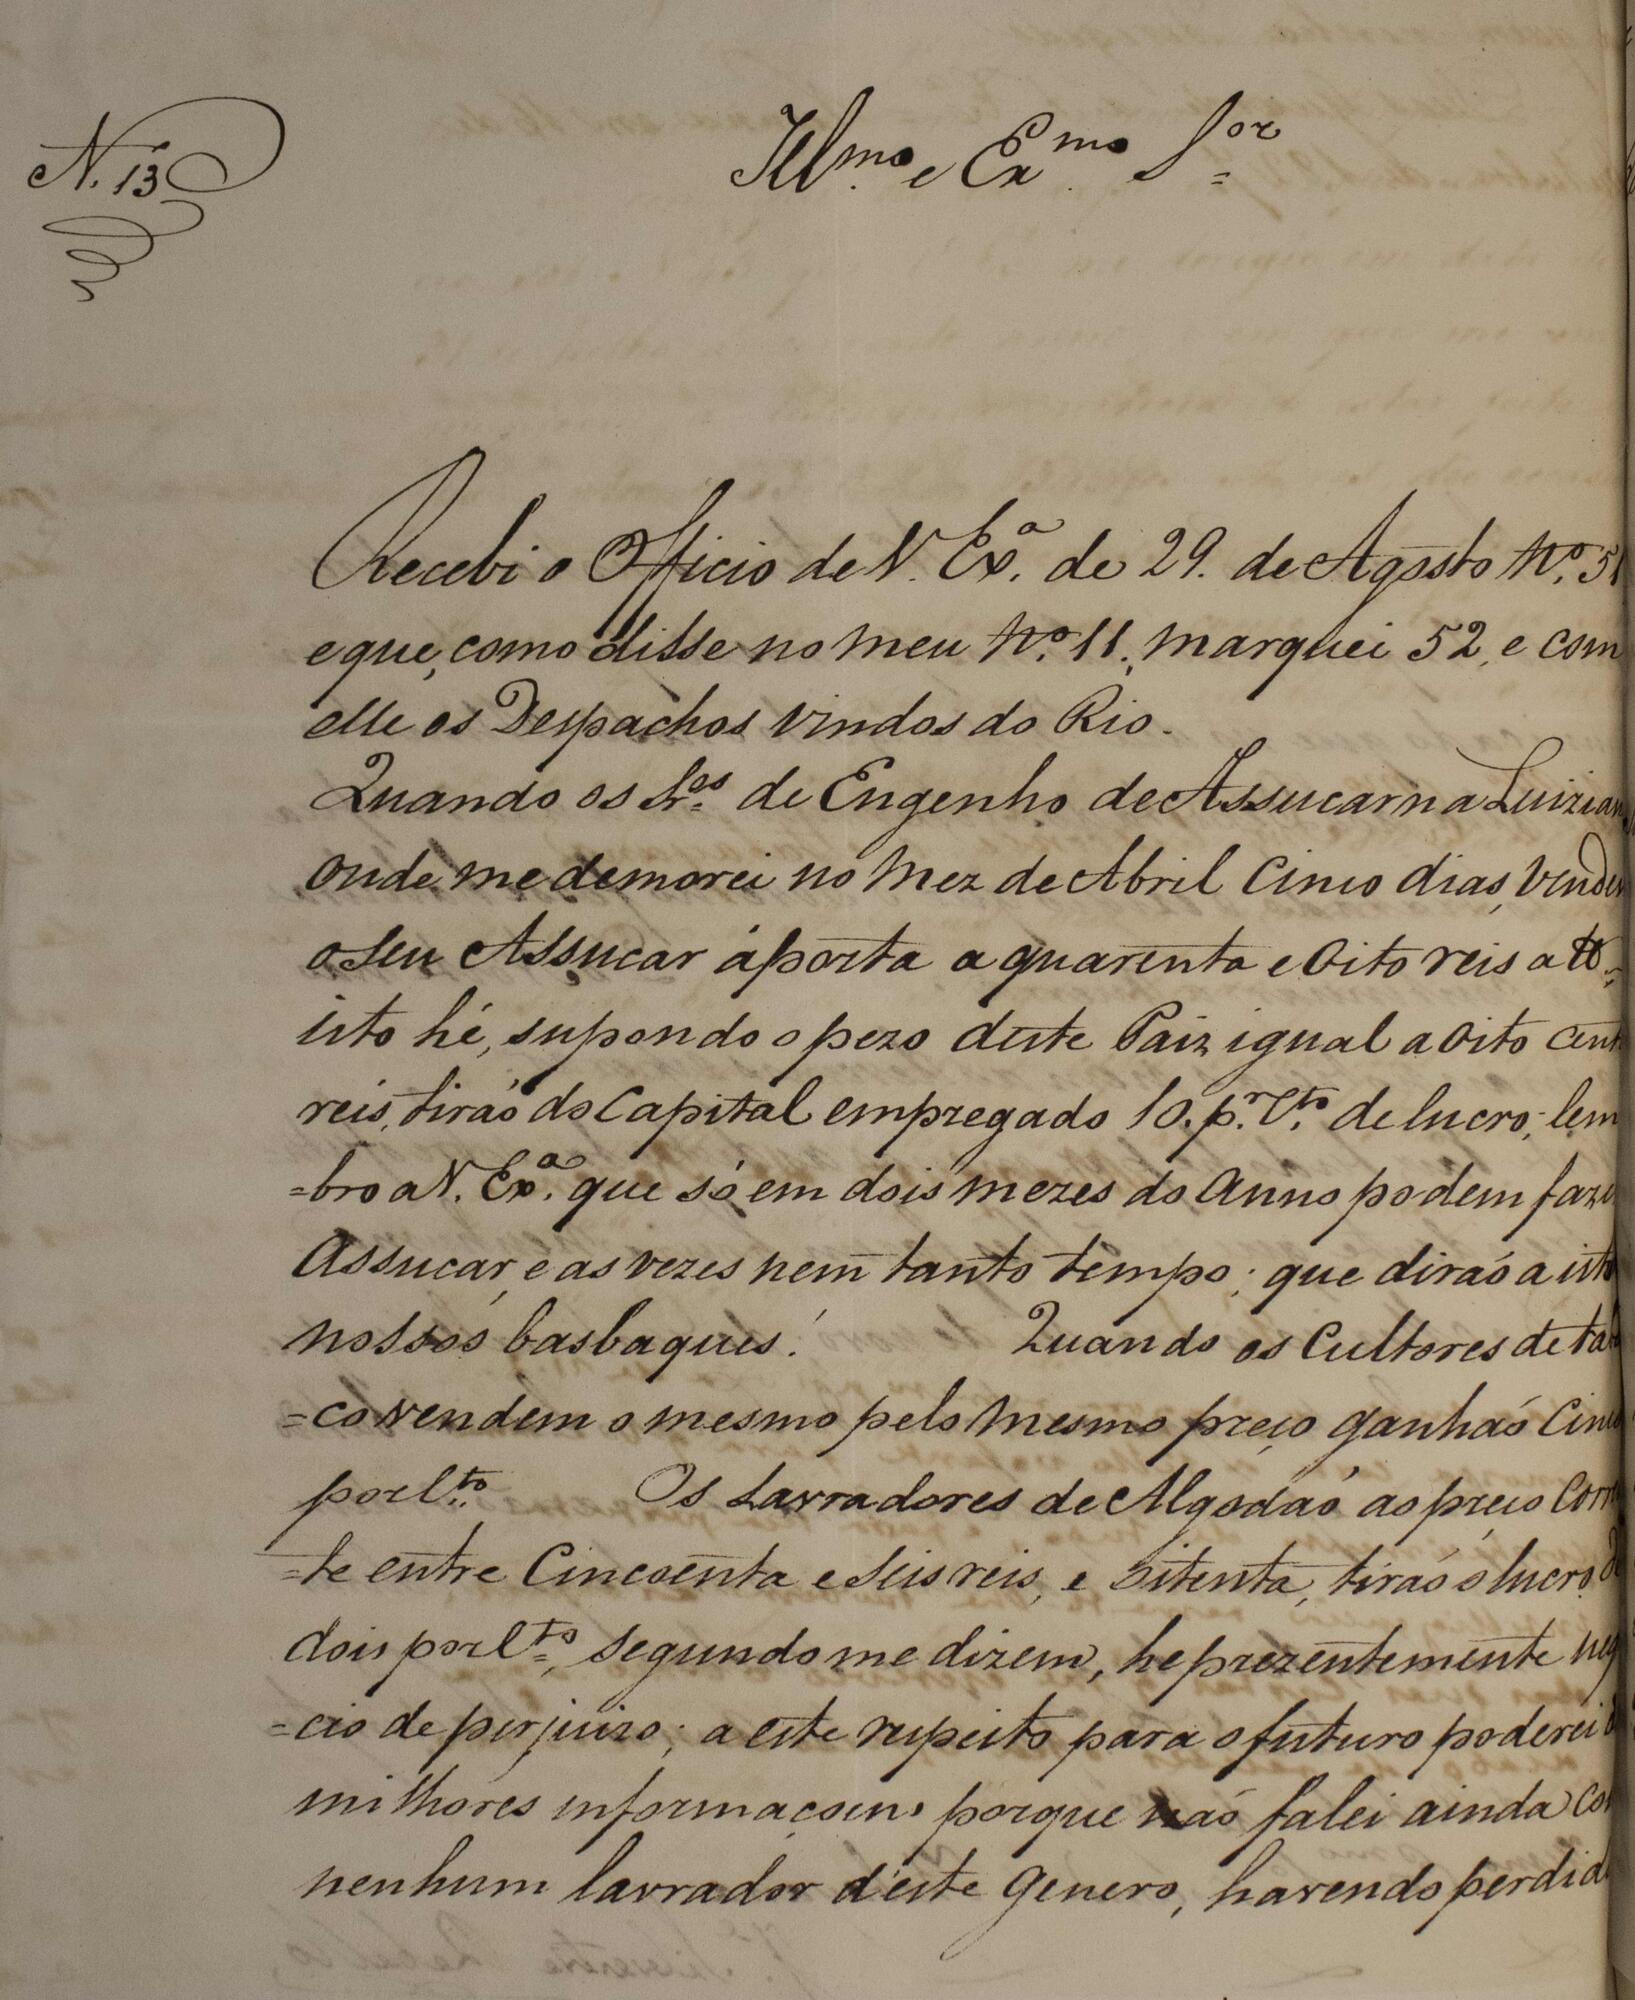 N. 13
Illmo e Exmo Sor
Recebi o Officio de V. Exa. de 29. de Agosto No. 51
e que, como disse no meu No. 11, marquei 52, e com
elle os Despachos vindos do Rio.
Quando os Sres. de Engenho de Assucar na Luizian
onde me demorei no Mez de Abril Cinco dias, vendem
o seu Assucar á porta a quarenta e oito reis a tt.
isto hé, supondo o pezo deste Paiz igual a oito cent
reis, tiraó do Capital empregado 10. pr. Cto. de lucro; lem
=bro a V. Exa. que só em dois mezes do Anno podem faze
Assucar, e as vezes nem tanto tempo; que diraó a isto
nossos basbaques!          Quando os Cultores de taba
=co vendem o mesmo pelo mesmo preço ganhaó Cinco
por Cto.          Os Lavradores de Algodaó ao preço Corre
=te entre Cincoenta e seis reis, e Sitenta, tiraó o lucro de
dois por Cto=, segundo me dizem, he prezentemente neg
=cio de perjuizo; a este respeito para o futuro poderei
milhores informaçoens porque naó falei ainda com
nenhum lavrador d'este genero, havendo perdid